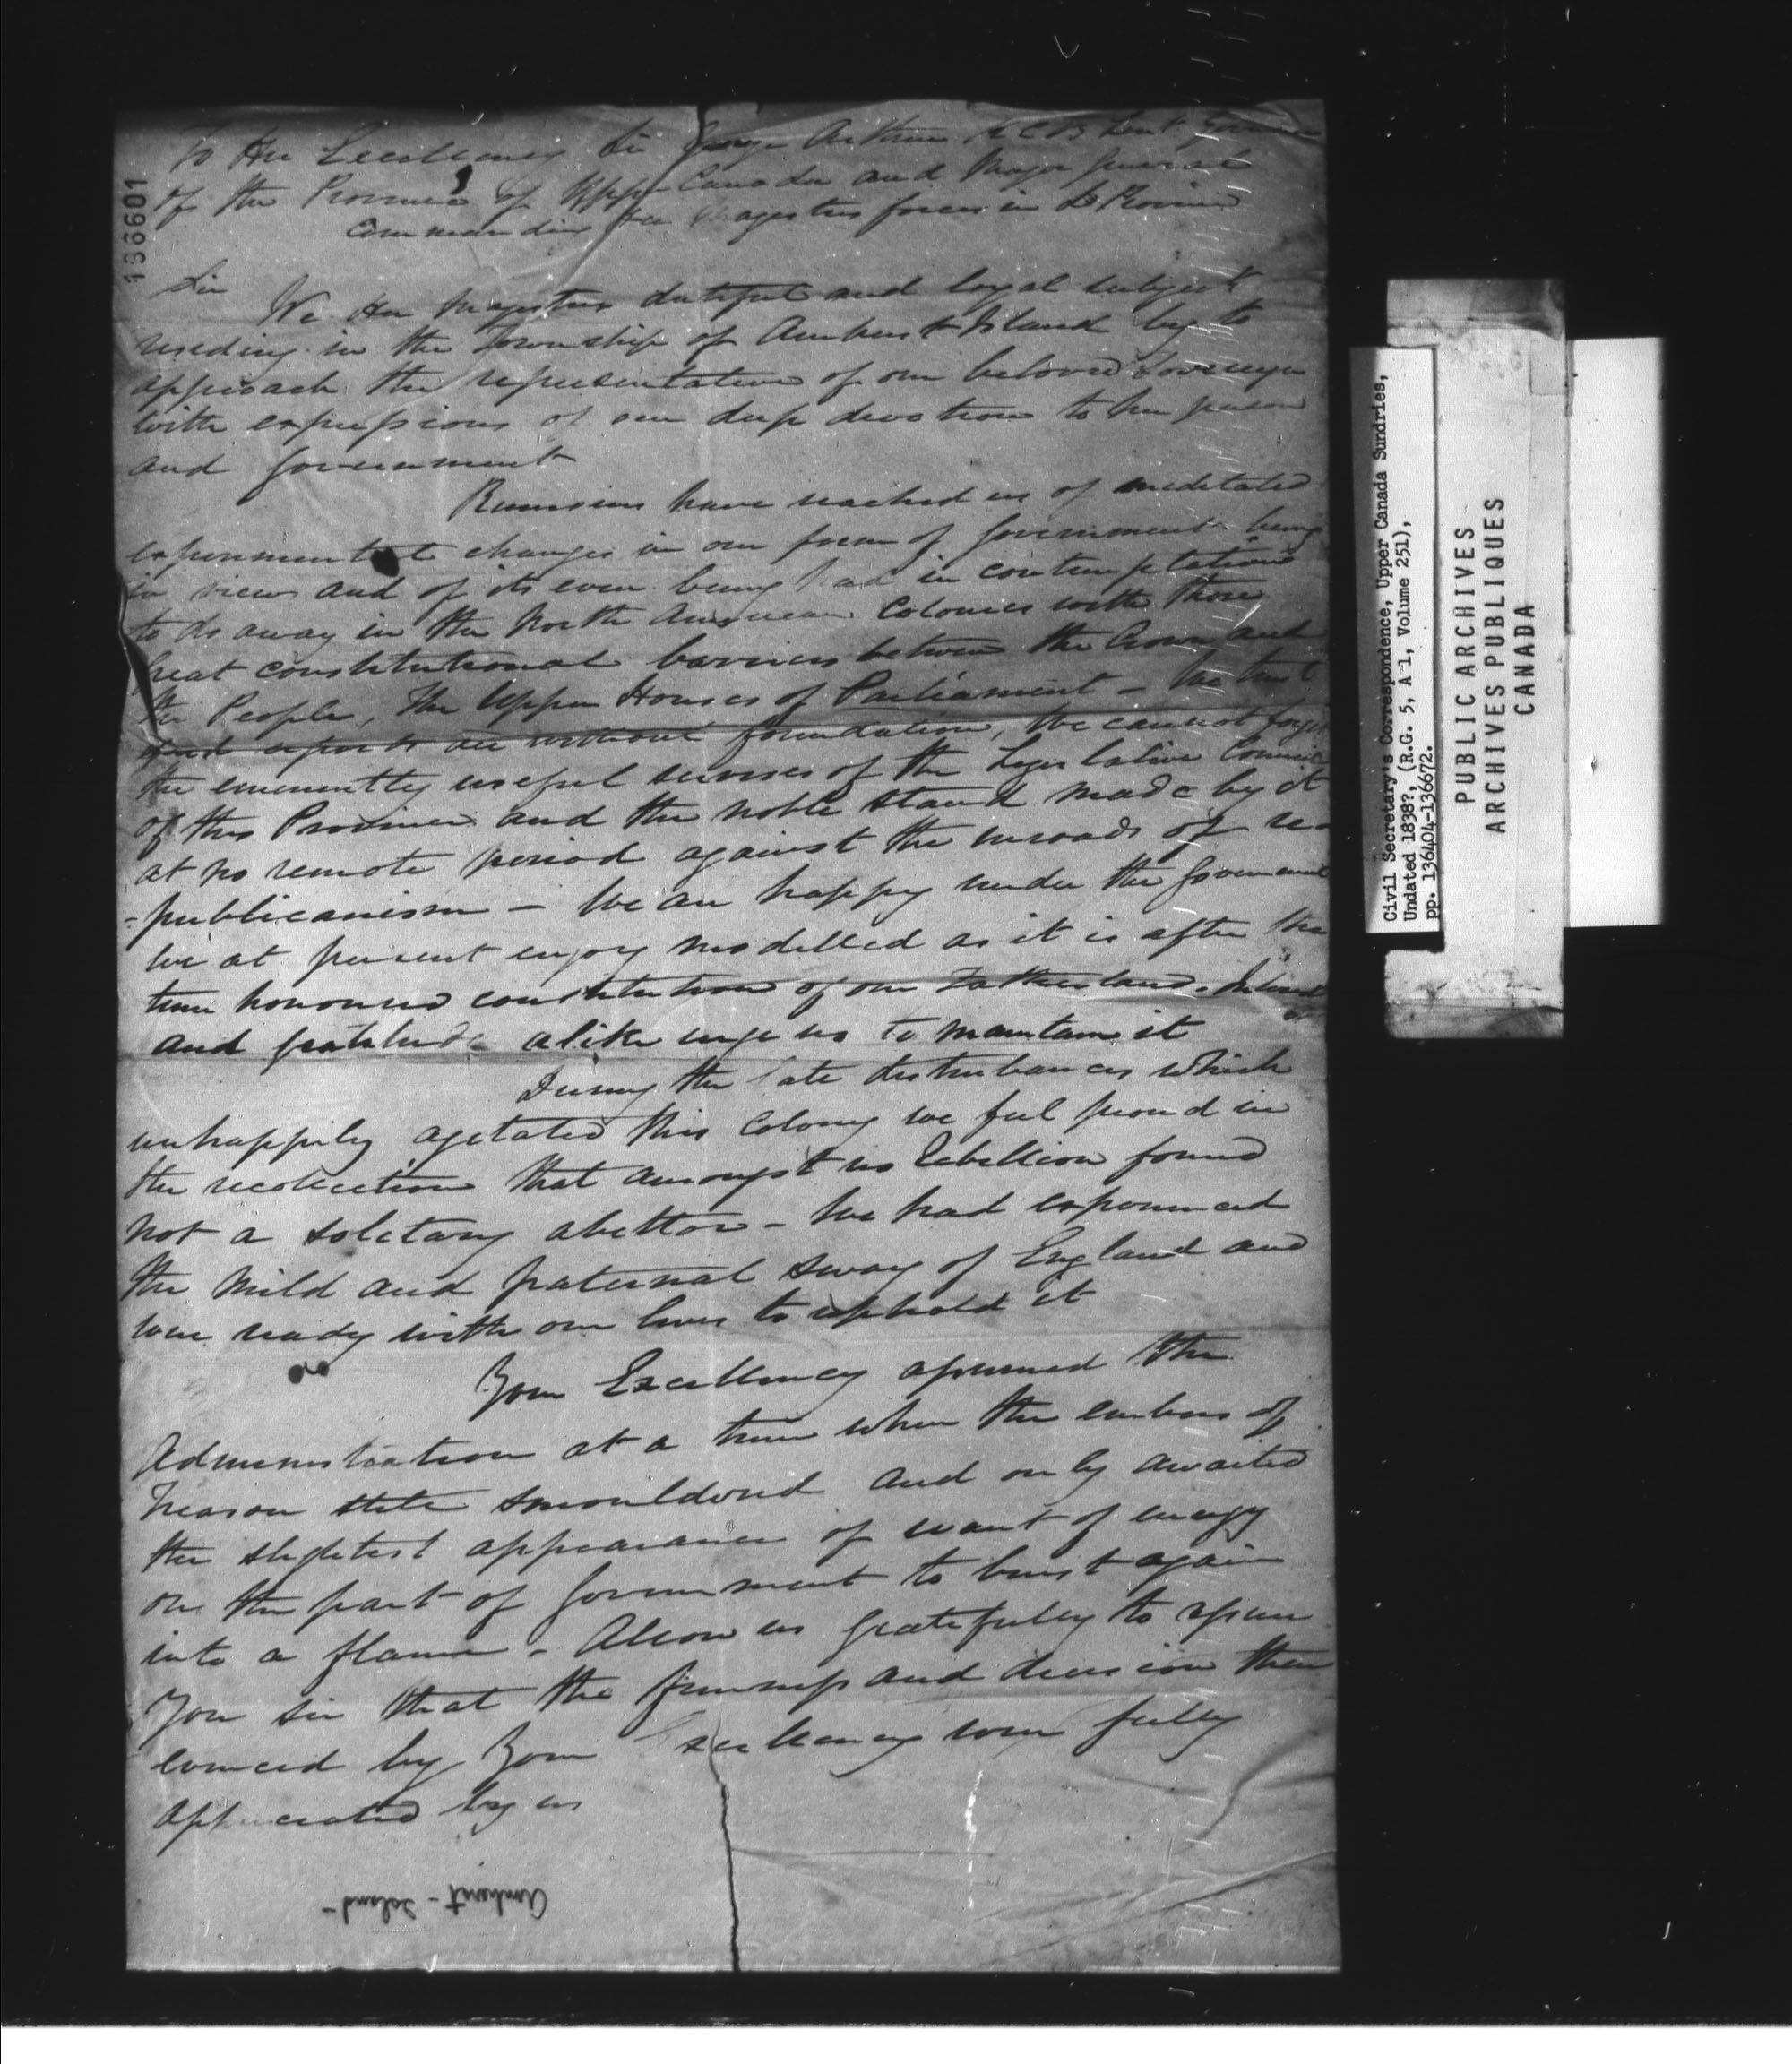 136601
To His Excellency Sir George Arthur K C B Lieut Governor
of the Province of Upper Canada and Major General
Commanding Her Majesties forces in Sd Province
Sir
We Her Majesties dutiful and loyal subjects
residing in the Township of Amherst Island beg to
approach the representative of our beloved Sovereign
with expressions of our deep devotion to her person
and government
Rumours have reached us of meditated
experimental changes in our form of Government being
in view and of its even being had in contemplation
to do away in the North American Colonies with those
great constitutional barriers between the Crown and
the People, the Upper Houses of Parliament – We trust
such reports are without foundation, We cannot forget
the eminently useful services of the Legislative Council
of this Province and the noble stand made by it
at no remote period against the inroads of re-
-publicanism – We are happy under the Government
we at present enjoy modelled as it is after the
time honoured constitution of our Fatherland. Interest
and gratitude alike urge us to maintain it
During the late disturbances which
unhappily agetated this Colony we feel proud in
the recollection that amongst us Rebellion found
not a soletary abettor – We had experienced
the mild and paternal sway of England and
were ready with our lives to uphold it
Your Excellency assumed the
Administration at a time when the embers of
Treason still smouldered and only awaited
the slightest appearance of want of energy
on the part of Government to burst again
into a flame – Allow us gratefully to assure
You Sir that the firmness and decision then
evinced by Your Excellency were fully
appreciated by us
Amherst – Island –
Civil Secretary's Correspondence, Upper Canada Sundries,
Undated 1838?, (R.G. 5, A 1, Volume 251),
pp. 136404-136672.
PUBLIC ARCHIVES
ARCHIVES PUBLIQUES
CANADA